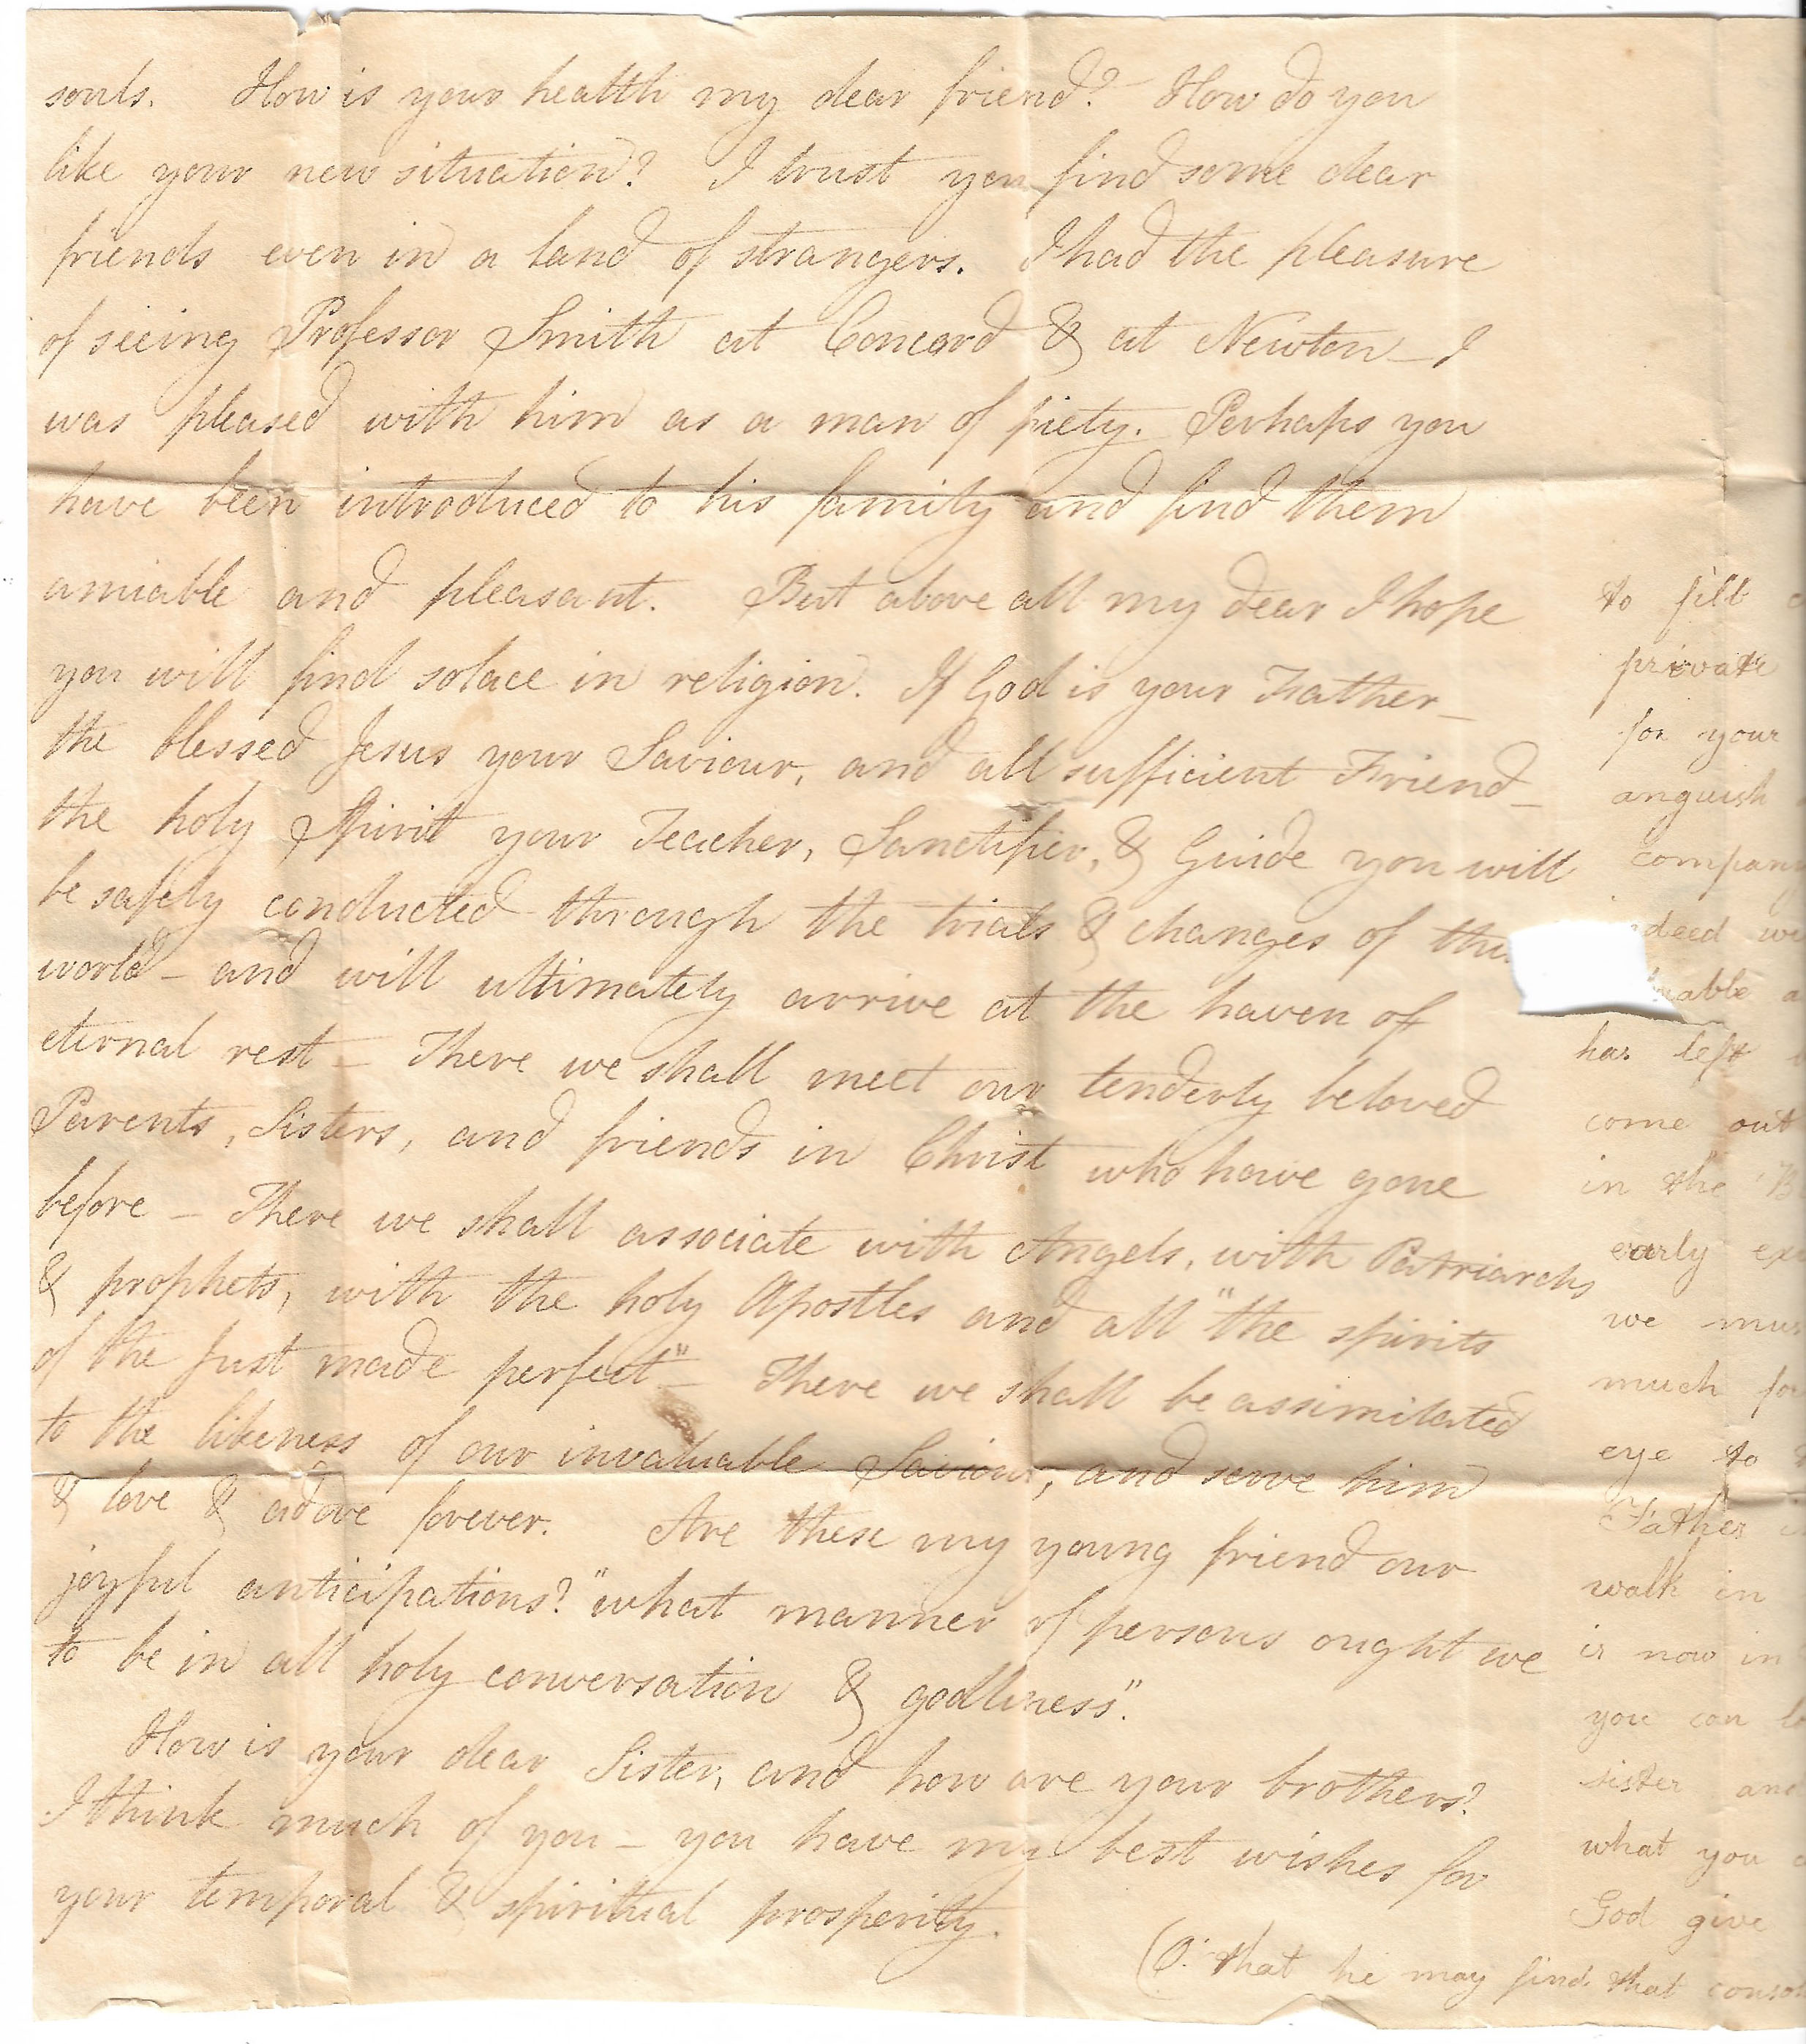 souls. How is your health my dear friend? How do you
like your new situation? I trust you find some dear
friends even in a land of strangers. I had the pleasure
of seeing Professor Smith at Concord & at Newton – I
was pleased with him as a man of piety. Perhaps you
have been introduced to his family and find them
amiable and pleasant. But above all my dear I hope
you will find solace in religion. If God is your Father –
the blessed Jesus your Saviour, and all sufficient Friend –
the holy Spirit your Teacher, Sanctifier, & Guide you will
be safely conducted through the trials & changes of this
world – and will ultimately arrive at the haven of
eternal rest – There we shall meet our tenderly beloved
Parents, Sisters, and friends in Christ who have gone
before – There we shall associate with Angels, with Patriarchs
& prophets, with the holy Apostles and all "the spirits
of the just made perfect" – There we shall be assimilated
to the likeness of our invaluable Saviour, and serve him
& love & adore forever. Are these my young friend our
joyful anticipations? "what manner of persons ought we
to be in all holy conversation & godliness".
How is your dear Sister, and how are your brothers?
I think much of you – you have my best wishes for
your temporal & spiritual prosperity.
to fill
private
for your
anguish
compan
deed
uable
has left
come out
in the
early
we mus
much for
eye to
Father
walk in
is now in
you can
sister and
what you
God give
(O. that he may find that conso